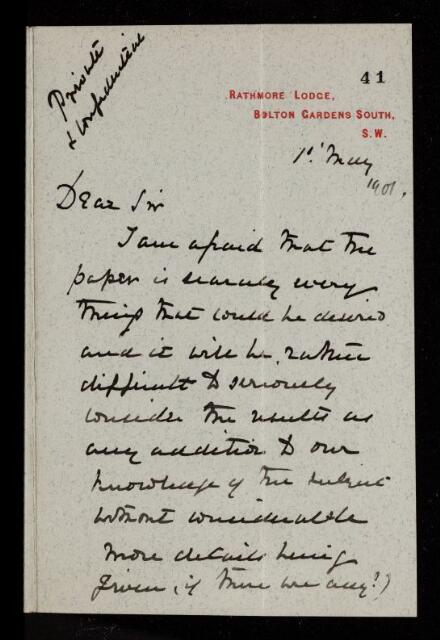 Private
& Confidential
41
RATHMORE LODGE,
BOLTON GARDENS SOUTH,
S.W.
1st May
1901.
Dear Sir
I am afraid that the
paper is scarcely every
thing that could be desired
and it will be rather
difficult to seriously
consider the results as
any addition to our
knowledge of the subject
without considerable
more details being
given (if there are any?)